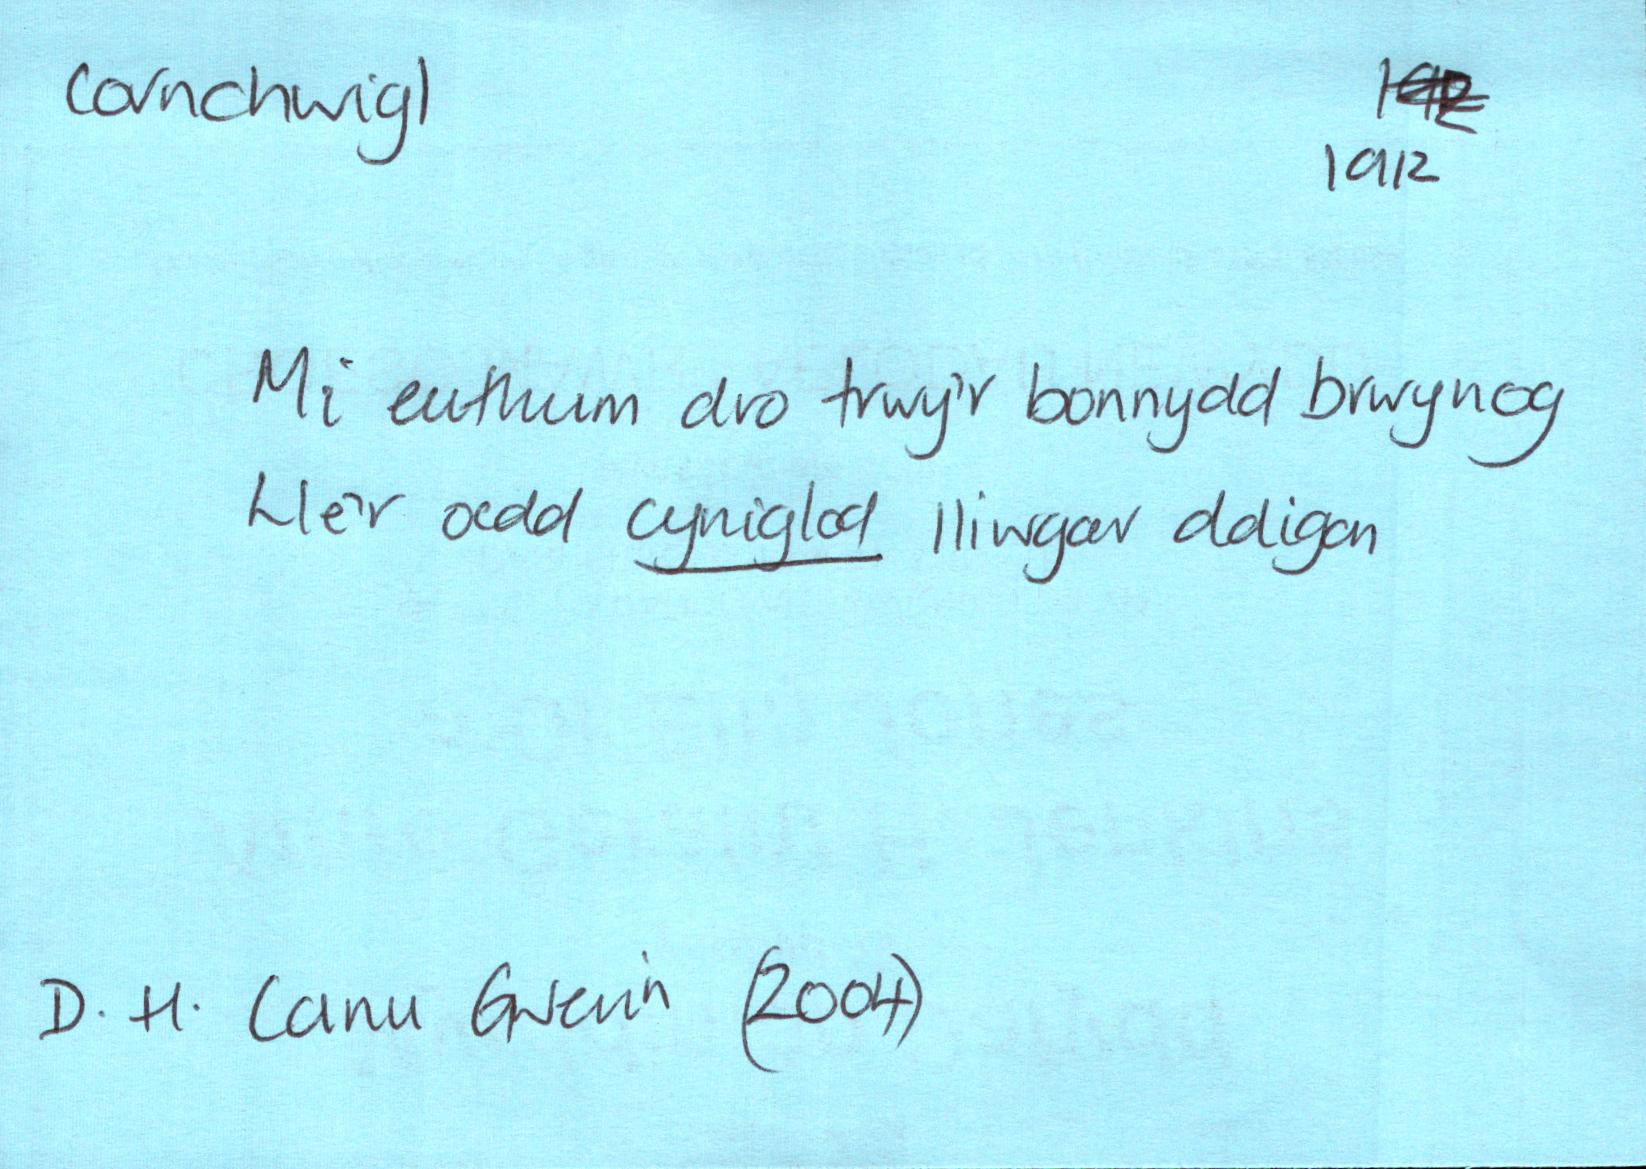 cornchwigl
1912
Mi euthum dro trwy'r bonnydd brwynog
Lle'r oedd cyniglod lliwgar ddigon
D. H. Canu Gwerin (2004)